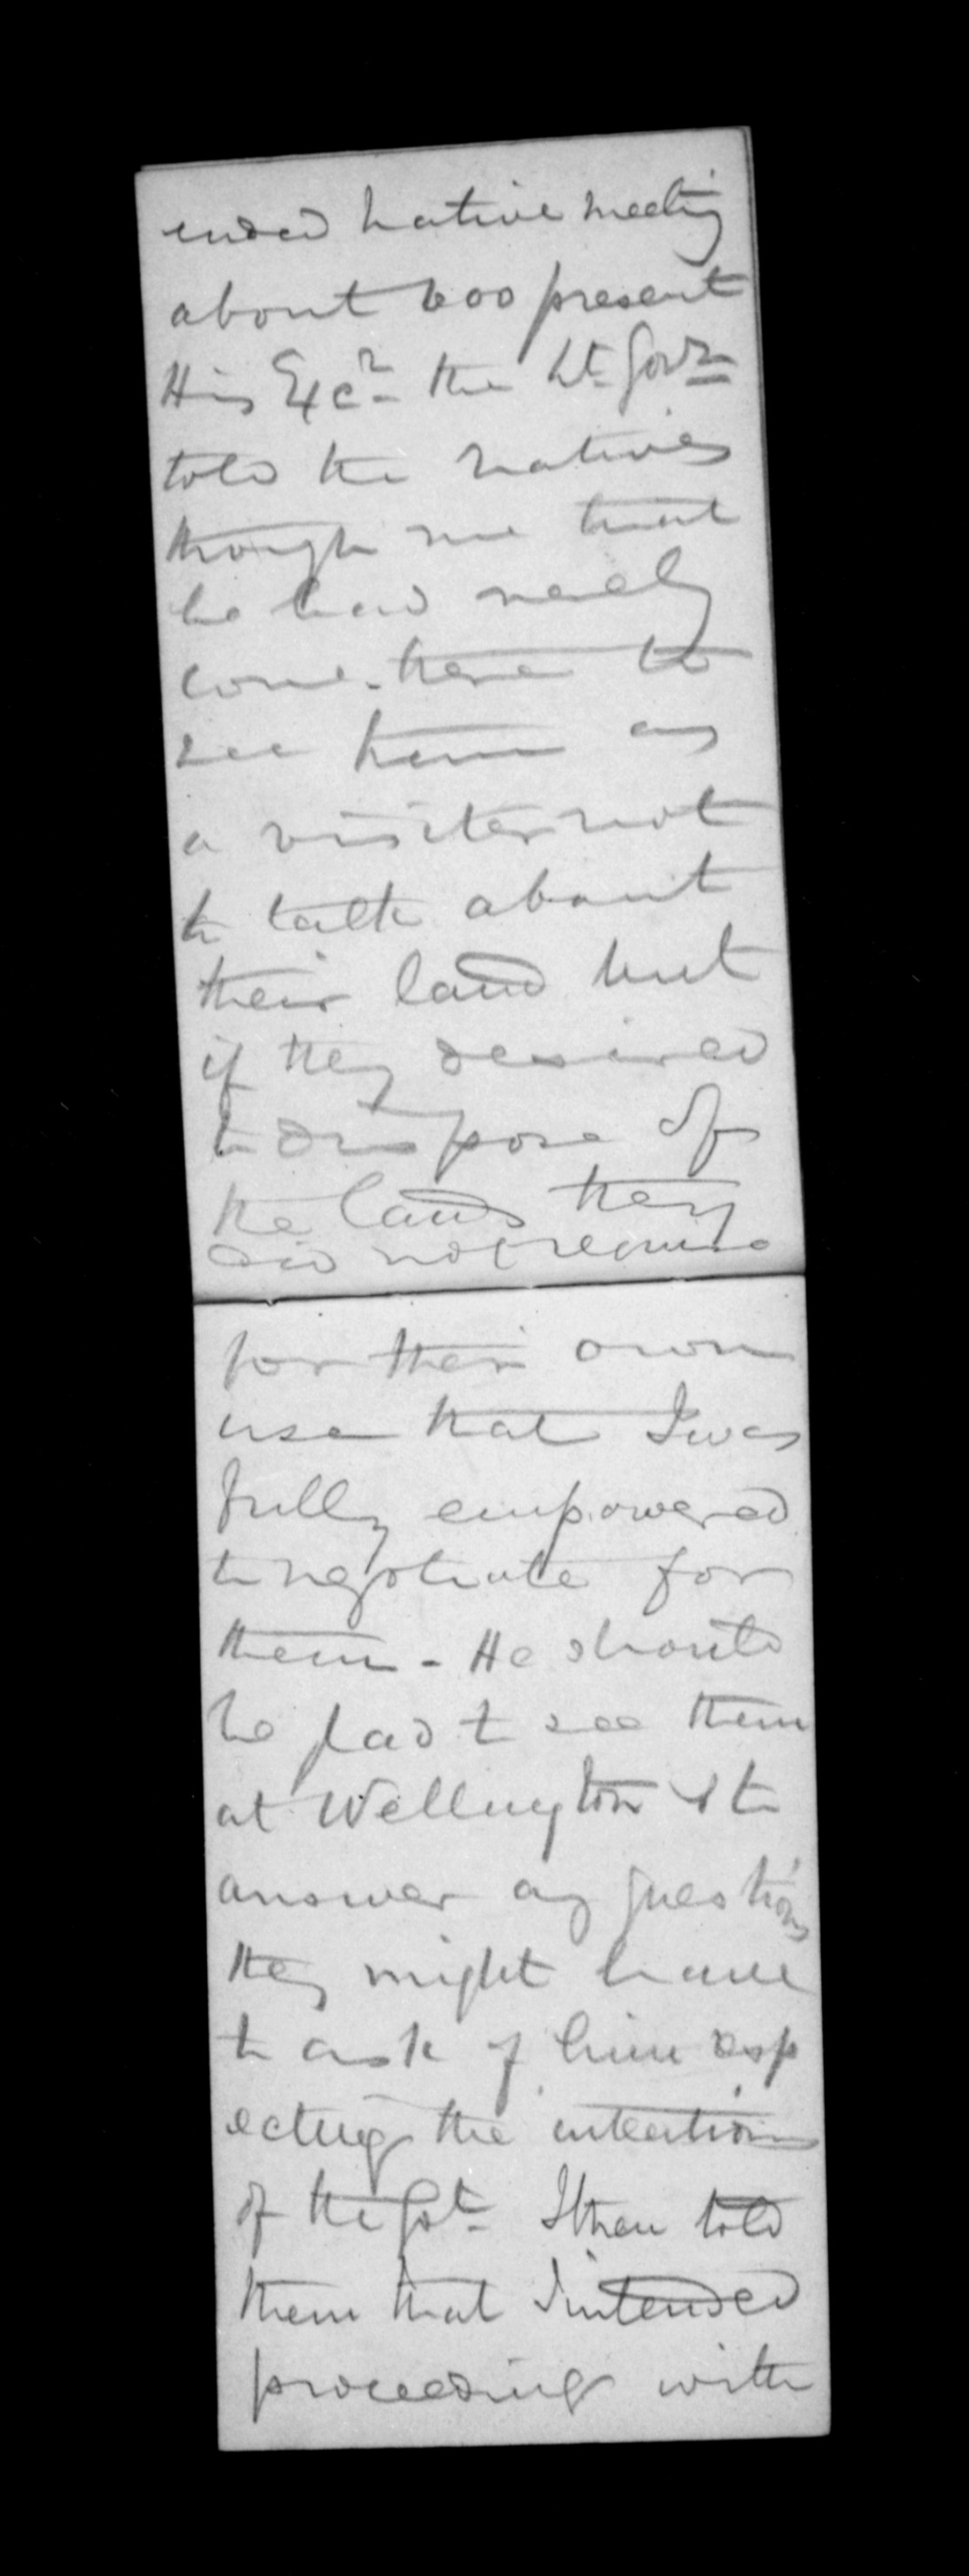 ended native meeting
about 600 present
His Exc^r- the Lt- Gov^r
told the natives
through me that
he had merely
come here to
see them as
a visiter not
to talk about
their land but
if they desired
to dispose of
the lands they
did not require
for their own
use that I was
fully empowered
to negotiate for
them - He should
be glad to see them
at Wellington & to
answer any questions
they might have
to ask of him resp
ecting the intentions
of the Got- I then told
them that I intended
proceeding with